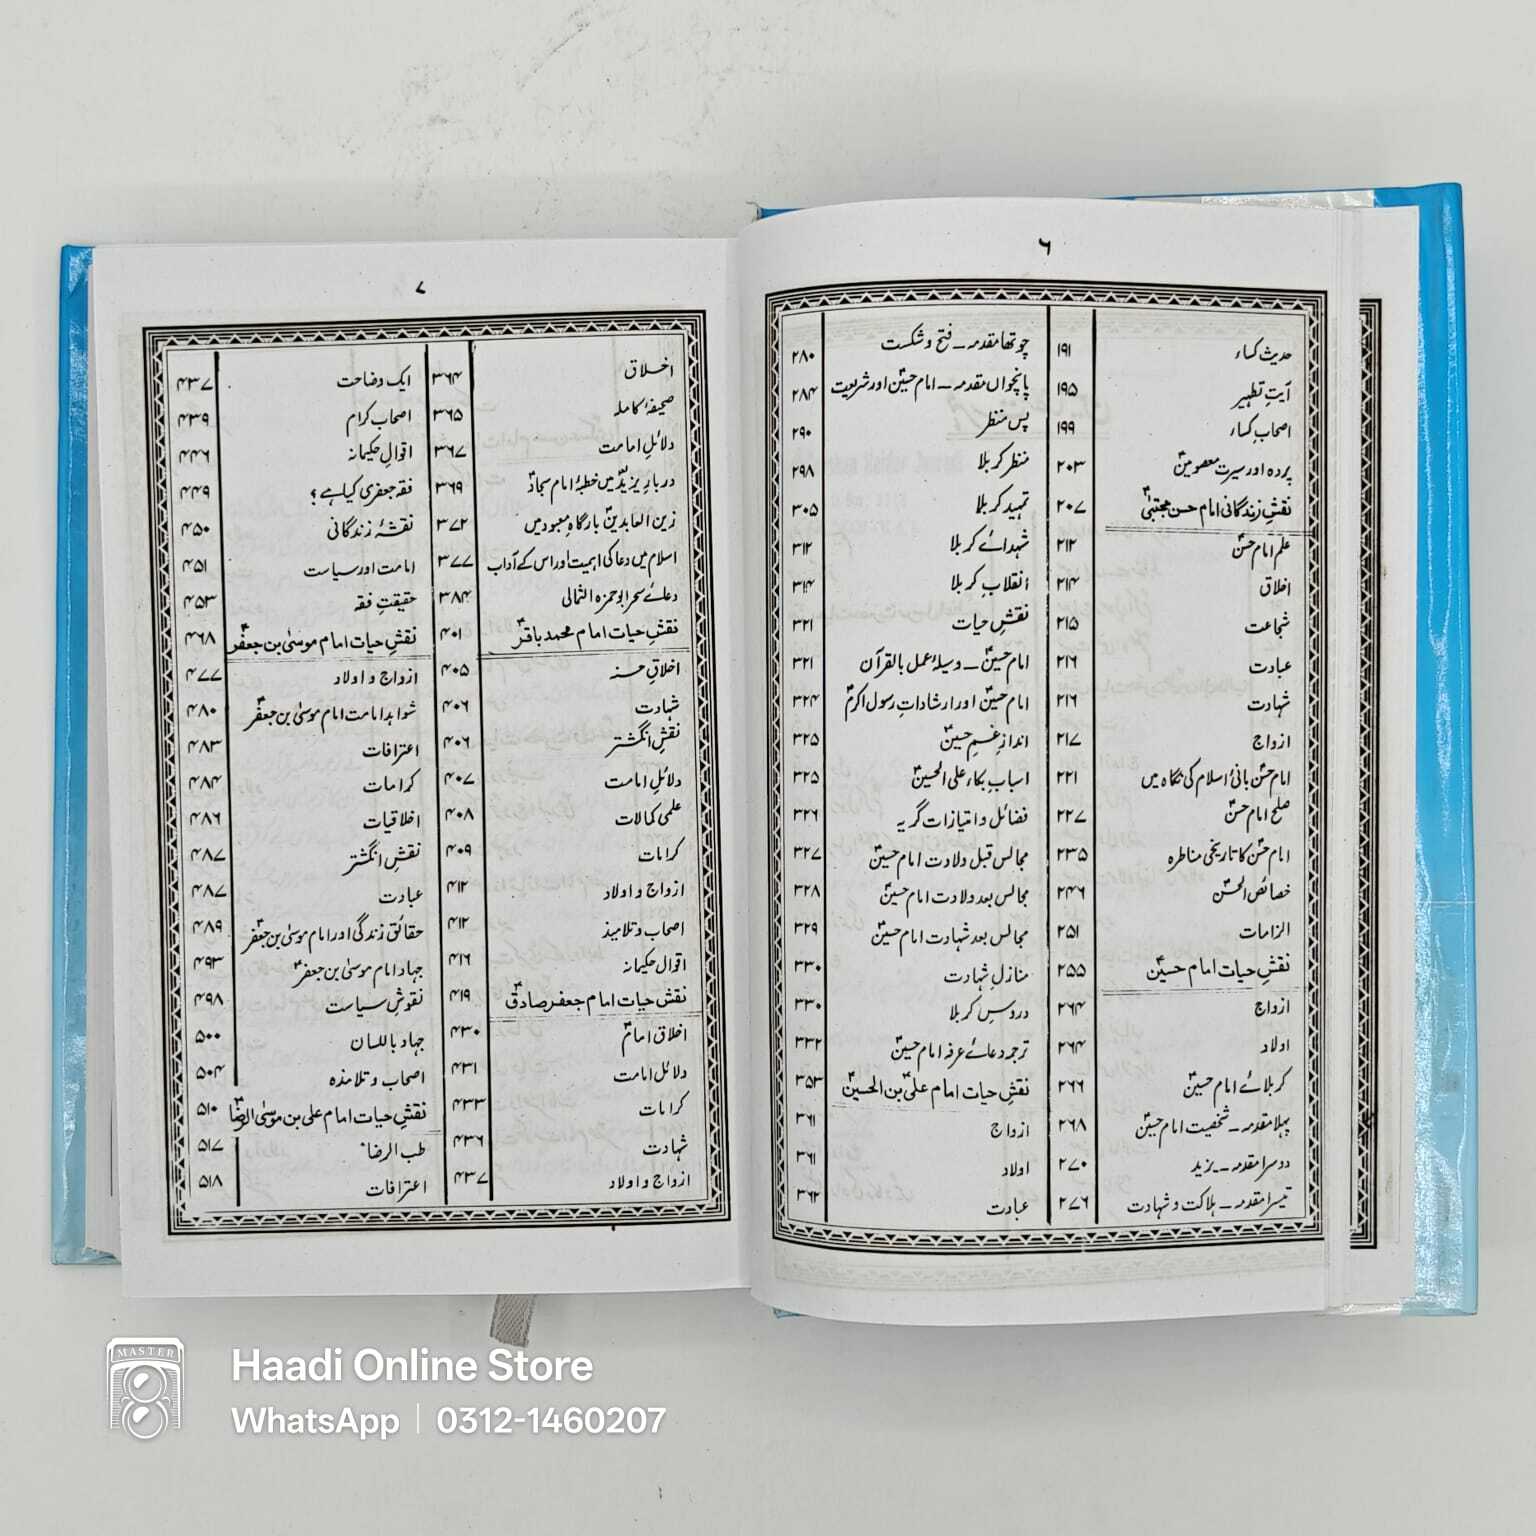 ۶
حدیث کساء ۱۹۱
آیتِ تطہیر ۱۹۵
اصحاب کساء ۱۹۹
پردہ اور سیرت معصومینؑ ۲۰۳
نقشِ زندگانی امام حسن مجتبیٰؑ ۲۰۷
علم امام حسنؑ ۲۱۲
اخلاق ۲۱۴
شجاعت ۲۱۵
عبادت ۲۱۶
شہادت ۲۱۶
ازواج ۲۱۷
امام حسنؑ بانیٔ اسلام کی نگاہ میں ۲۲۱
صلح امام حسنؑ ۲۲۷
امام حسنؑ کا تاریخی مناظرہ ۲۳۵
خصائص الحسنؑ ۲۴۶
الزامات ۲۵۱
نقشِ حیات امام حسینؑ ۲۵۵
ازواج ۲۶۴
اولاد ۲۶۴
کربلائے امام حسینؑ ۲۶۶
پہلا مقدمہ ــ شخصیت امام حسینؑ ۲۶۸
دوسرا مقدمہ ــ یزید ۲۷۰
تیسرا مقدمہ ــ ہلاکت و شہادت ۲۷۶
چوتھا مقدمہ ــ فتح و شکست ۲۸۰
پانچواں مقدمہ ــ امام حسینؑ اور شریعت ۲۸۴
پس منظر ۲۹۰
منظر کربلا ۲۹۸
تمہید کربلا ۳۰۵
شہدائے کربلا ۳۱۲
انقلابِ کربلا ۳۱۴
نقشِ حیات ۳۲۱
امام حسینؑ ــ وسیلۂ عمل بالقرآن ۳۲۱
امام حسینؑ اور ارشاداتِ رسول اکرمؐ ۳۲۴
اندازِ غم حسینؑ ۳۲۵
اسبابِ بکاء علی الحسینؑ ۳۲۵
فضائل و امتیازات گریہ ۳۲۶
مجالس قبل ولادت امام حسینؑ ۳۲۷
مجالس بعد ولادت امام حسینؑ ۳۲۸
مجالس بعد شہادت امام حسینؑ ۳۲۹
منازلِ شہادت ۳۳۰
دروسِ کربلا ۳۳۰
ترجمہ دعائے عرفہ امام حسینؑ ۳۳۲
نقشِ حیات امام علیؑ بن الحسینؑ ۳۵۳
ازواج ۳۶۱
اولاد ۳۶۱
عبادت ۳۶۲
۷
اخلاق ۳۶۴
صحیفۂ کاملہ ۳۶۵
دلائلِ امامت ۳۶۷
دربارِ یزید میں خطبۂ امام سجادؑ ۳۶۹
زین العابدینؑ بارگاہِ معبود میں ۳۷۲
اسلام میں دعا کی اہمیت اور اس کے آداب ۳۷۷
دعائے سحر ابوحمزہ الثمالی ۳۸۴
نقشِ حیات امام محمد باقرؑ ۴۰۱
اخلاقِ حسنہ ۴۰۵
شہادت ۴۰۶
نقشِ انگشتر ۴۰۶
دلائلِ امامت ۴۰۷
علمی کمالات ۴۰۸
کرامات ۴۰۹
ازواج و اولاد ۴۱۲
اصحاب و تلامیذ ۴۱۲
اقوال حکیمانہ ۴۱۶
نقشِ حیات امام جعفر صادقؑ ۴۱۹
اخلاق امامؑ ۴۳۰
دلائلِ امامت ۴۳۱
کرامات ۴۳۳
شہادت ۴۳۶
ازواج و اولاد ۴۳۷
ایک وضاحت ۴۳۷
اصحاب کرام ۴۳۹
اقوالِ حکیمانہ ۴۴۶
فقہ جعفری کیا ہے؟ ۴۴۹
نقشۂ زندگانی ۴۵۰
امامت اور سیاست ۴۵۱
حقیقتِ فقہ ۴۵۳
نقشِ حیات امام موسیٰ بن جعفرؑ ۴۶۸
ازواج و اولاد ۴۷۷
شواہد امامت امام موسیٰ بن جعفرؑ ۴۸۰
اعترافات ۴۸۳
کرامات ۴۸۴
اخلاقیات ۴۸۶
نقشِ انگشتر ۴۸۷
عبادت ۴۸۷
حقائق زندگی اور امام موسیٰ بن جعفرؑ ۴۸۹
جہاد امام موسیٰ بن جعفرؑ ۴۹۳
نقوشِ سیاست ۴۹۸
جہاد باللسان ۵۰۰
اصحاب و تلامذہ ۵۰۴
نقشِ حیات امام علی بن موسیٰ الرضاؑ ۵۱۰
طب الرضاؑ ۵۱۷
اعترافات ۵۱۸
MASTER
Haadi Online Store
WhatsApp | 0312-1460207